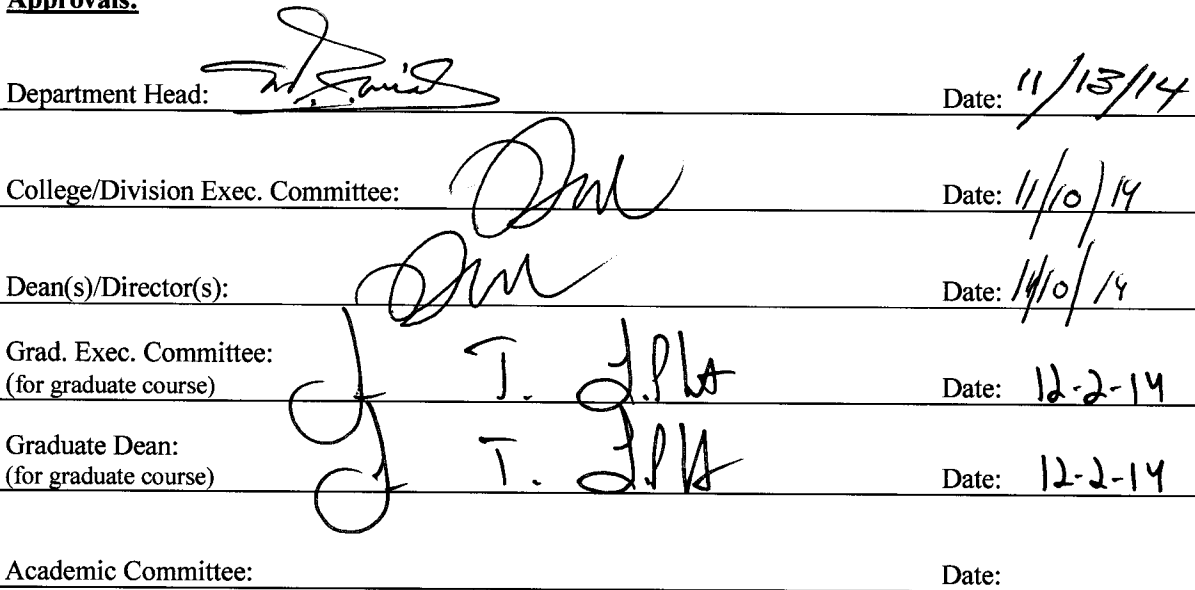 Approvals:
Department Head: Date: 11/13/14
College/Division Exec. Committee: Date: 11/10/14
Dean(s)/Director(s): Date: 11/10/14
Grad. Exec. Committee:
(for graduate course) Date: 12-2-14
Graduate Dean:
(for graduate course) Date: 12-2-14
Academic Committee: Date: